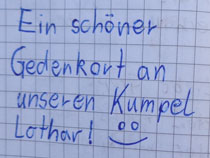 Ein schöner
Gedenkort an
unseren Kumpel
Lothar!